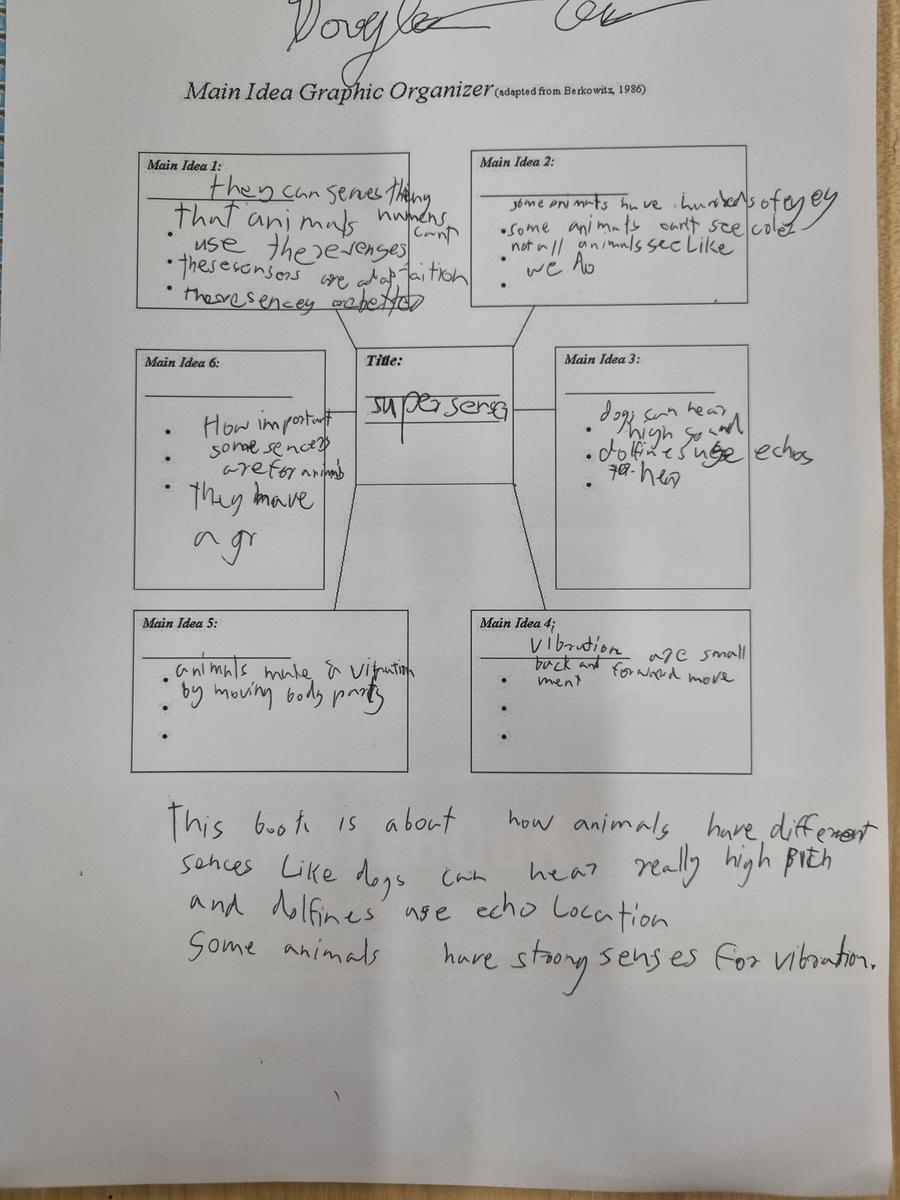 Main Idea Graphic Organizer (adapted from Berkowitz, 1986)
Main Idea 1:
they can senses thing
that animals humens
cant
use thesesenges
thesesensers are adaptaition
thesesencey arebetter
Main Idea 2:
some animals have hundreds of eyey
some animals can't see coler
not all animals see like
we do
Main Idea 6:
How important
some sences
are for animals
they have
a gr
Title:
super senses
Main Idea 3:
dogs can hear
high sound
dolfines use echos
hear
Main Idea 5:
animals make a vibrution
by moving body parts
Main Idea 4:
Vibration are small
back and forward move
ment
This book is about how animals have different
sences Like dogs can hear really high pitch
and dolfines use echo Location
Some animals have strong senses for vibration.